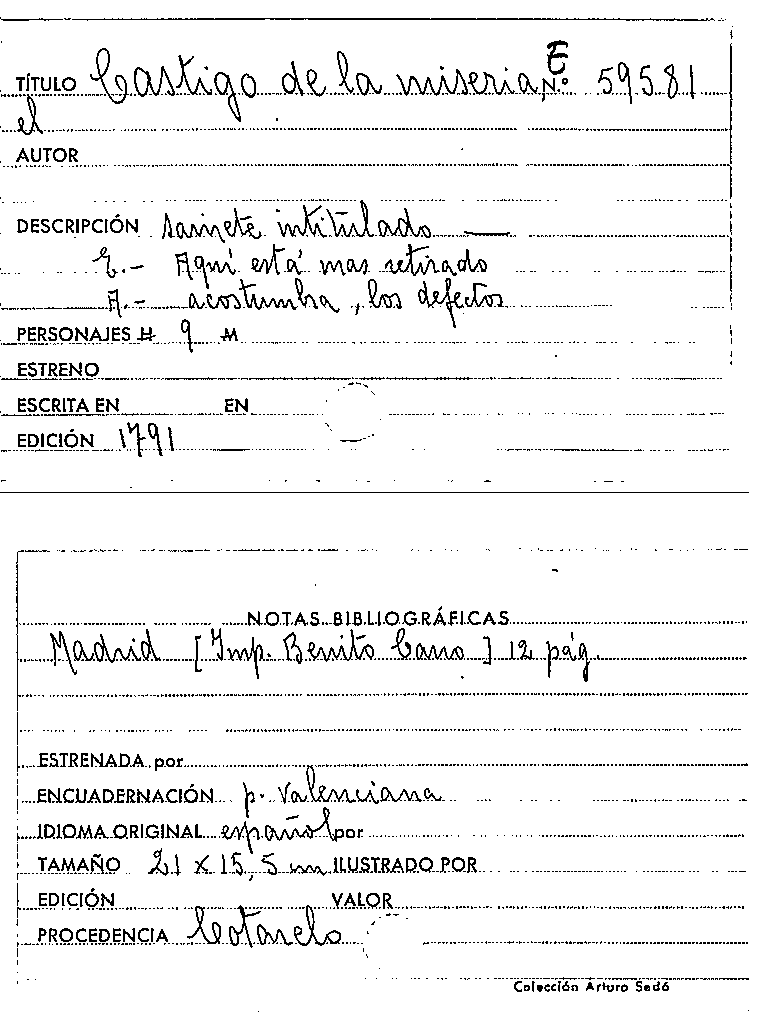 E
TÍTULO Castigo de la miseria, N.º 59581
el
AUTOR
DESCRIPCIÓN sainete intitulado —
E.- Aquí está mas retirado
A.- acostumbra, los defectos
PERSONAJES H 9 M
ESTRENO
ESCRITA EN EN
EDICIÓN 1791
NOTAS BIBLIOGRÁFICAS
Madrid [Imp. Benito Cano] 12 pág.
ESTRENADA por
ENCUADERNACIÓN p. Valenciana
IDIOMA ORIGINAL español por
TAMAÑO 21 x 15,5 cm ILUSTRADO POR
EDICIÓN VALOR
PROCEDENCIA Cotarelo
Colección Arturo Sedó